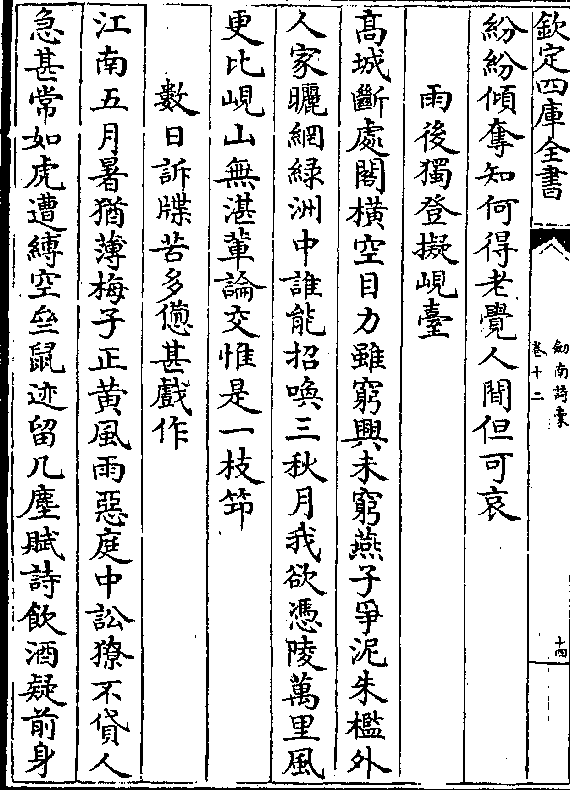 欽定四庫全書
劍南詩槀
卷十二
十四
紛紛傾奪知何得老覺人間但可哀
雨後獨登擬峴臺
髙城斷處閣橫空目力雖窮興未窮燕子爭泥朱檻外
人家曬網緑洲中誰能招喚三秋月我欲憑陵萬里風
更比峴山無湛輩論交惟是一枝笻
數日訴牒苦多憊甚戲作
江南五月暑猶薄梅子正黃風雨惡庭中訟獠不貸人
急甚常如虎遭縛空垒鼠迹留几塵賦詩飲酒疑前身